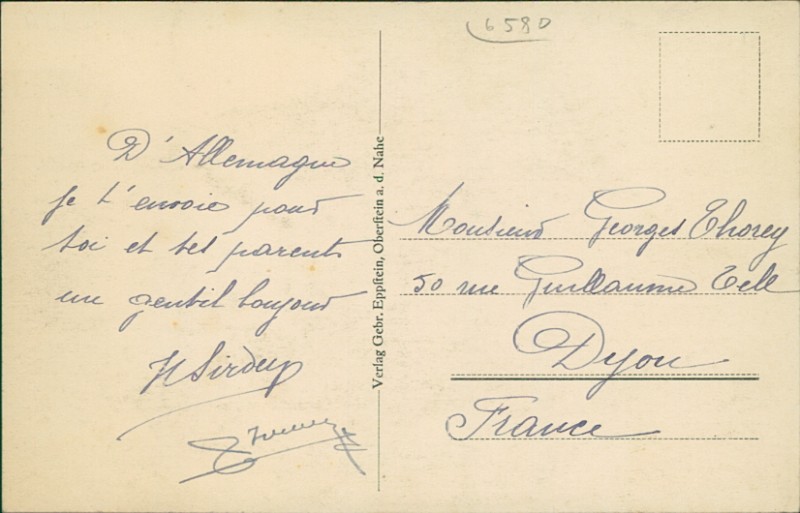 6580
D'Allemagne
je t'envoie pour
toi et tes parents
un gentil bonjour
H Sirdey
Verlag Gebr. Eppstein, Oberstein a. d. Nahe
Monsieur Georges Thorey
50 rue Guillaume Tell
Dijon
France